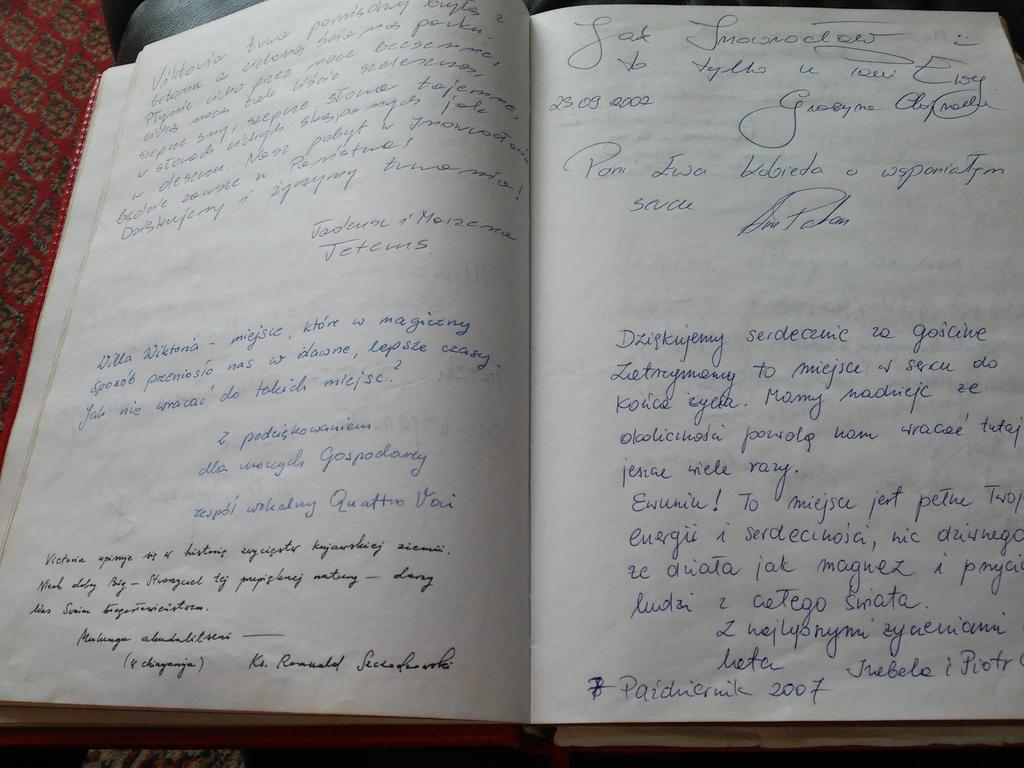 Wiktoria tuwa pomiędzy bryłą z
betonu a zieloną ścianą parku.
Płynie cicho przez noce bezsenne,
nocą tak liście szeleszczą,
szepcze sny, szepcze słowa tajemne,
w słowach cichych skąpanych jak
w deszczu. Nasz pobyt w Inowrocławiu
będzie zawsze u Państwa!
Dziękujemy i życzymy trwania!
Tadeusz i Marzena
Willa Wiktoria - miejsce, które w magiczny
sposób przeniosło nas w dawne, lepsze czasy.
Jak nie wracać do takich miejsc?
z podziękowaniem
dla uroczych Gospodarzy
zespół wokalny Quattro Voci
Victoria wpisuje się w historię zwycięstw kujawskiej ziemi.
Niech dobry Bóg - Stworzyciel tej przepięknej natury - darzy
Was Swoim błogosławieństwem.
Ks. Romuald
Jak Inowrocław :)
to tylko u Pani Ewy
23.09.2002
Grażyna
Pani Ewa kobieta o wspaniałym
sercu
Dziękujemy serdecznie za gościnę
Zatrzymamy to miejsce w sercu do
końca życia. Mamy nadzieję że
okoliczności pozwolą nam wracać tutaj
jeszcze wiele razy.
Ewuniu! To miejsce jest pełne Twojej
energii i serdeczności, nic dziwnego
że działa jak magnez i przyciąga
ludzi z całego świata.
Z najlepszymi życzeniami
Izabela i Piotr
7 Październik 2007